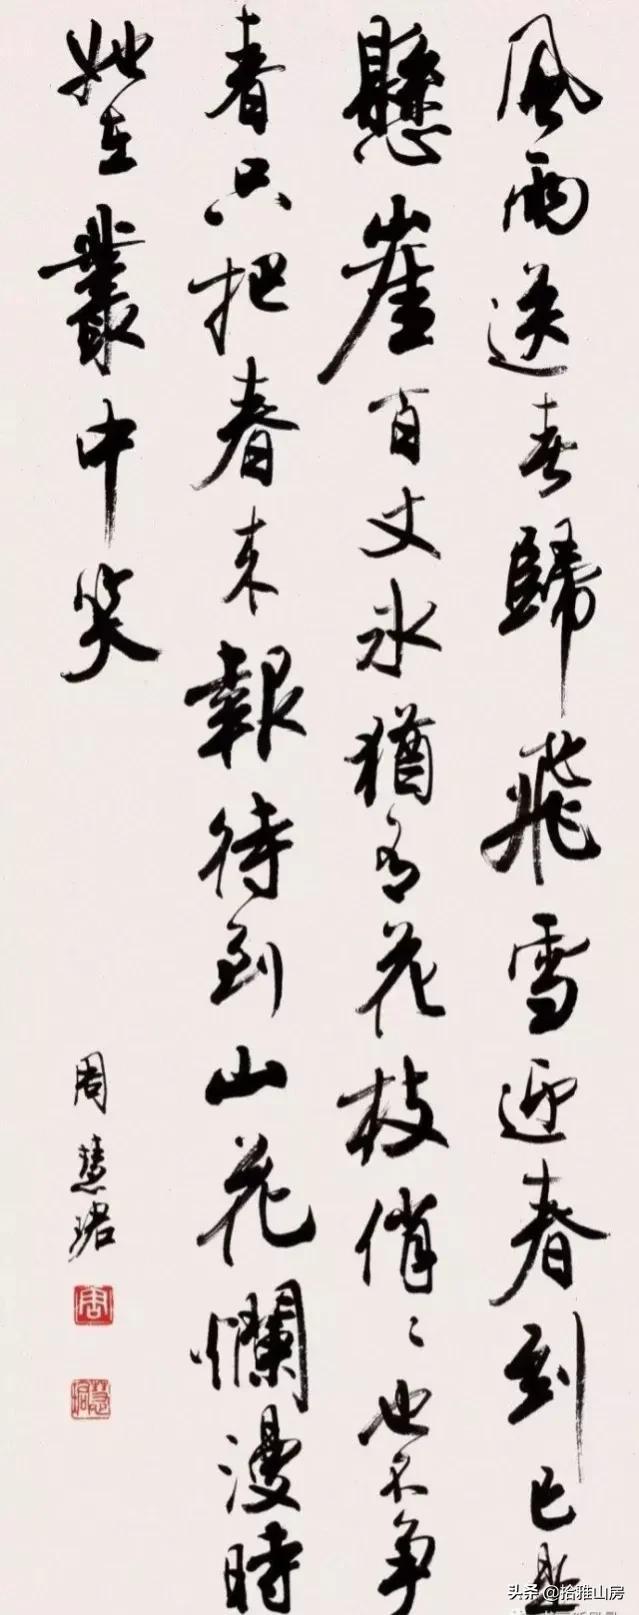 風雨送春歸飛雪迎春到已是
懸崖百丈冰猶有花枝俏〻也不争
春只把春来報待到山花爛漫時
她在叢中笑
周慧珺
周
慧珺
头条 @拾雅山房